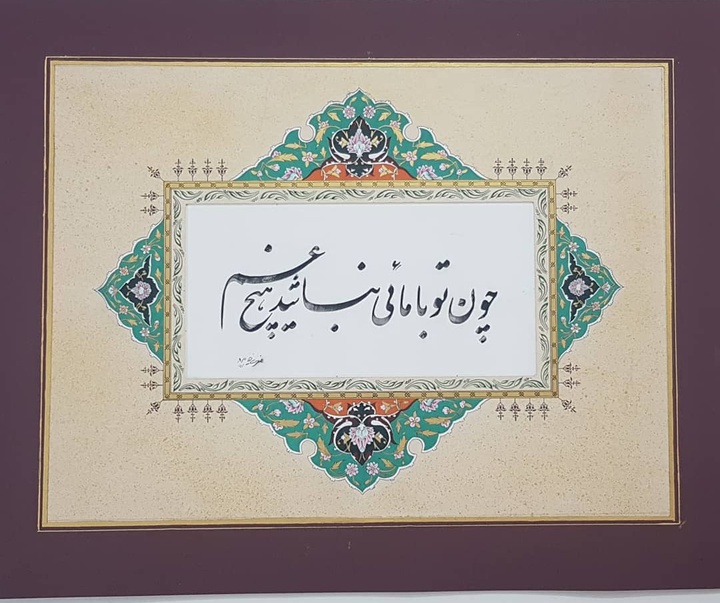 چون تو با مائی نباشد هیچ غم